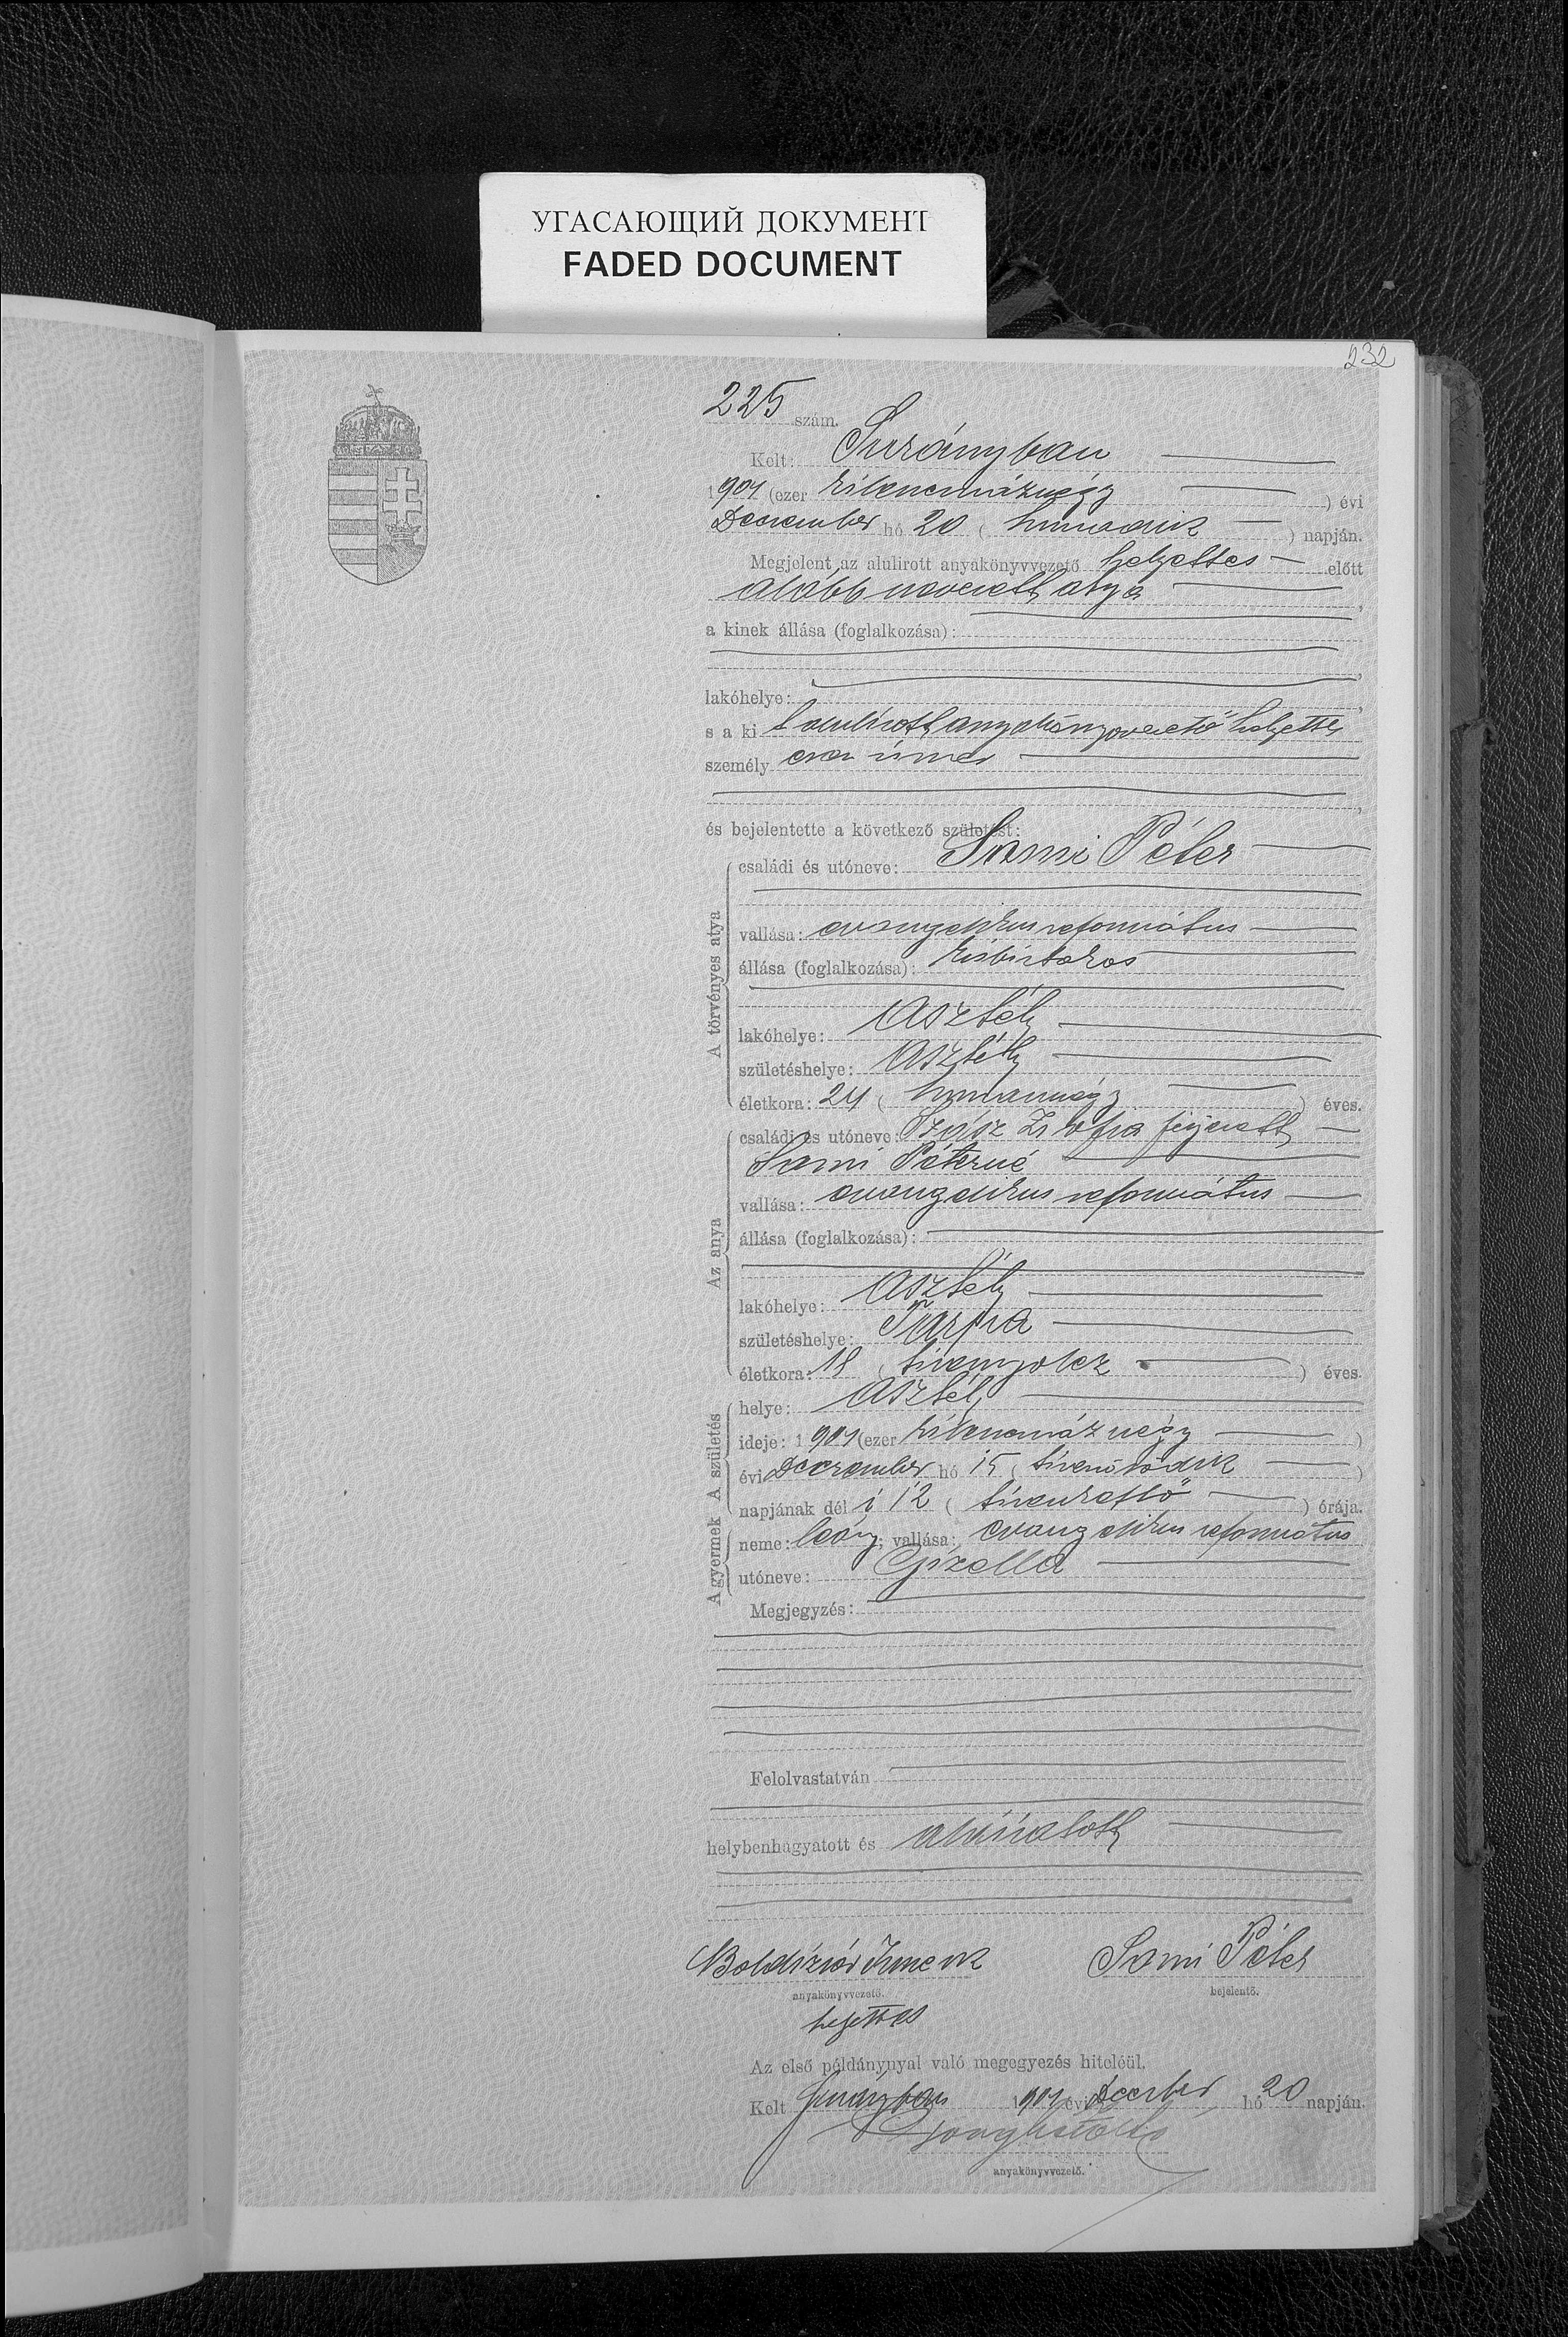 УГАСАЮЩИЙ ДОКУМЕНТ
FADED DOCUMENT
232
225 szám.
Kelt: Surányban
1904 (ezer kilencszáznégy) évi
Deczember hó 20 (huszadik) napján.
Megjelent az alulirott anyakönyvvezető helyettes előtt
alább nevezett atya,
a kinek állása (foglalkozása):
lakóhelye:
s a ki alulírott anyakönyvvezető helyettes
személy esen ismer
és bejelentette a következő születést:
A törvényes atya
családi és utóneve: Sami Péter
vallása: evangelikus református
állása (foglalkozása): kisbirtokos
lakóhelye: Asztély
születéshelye: Asztély
életkora: 24 (huszannégy) éves.
Az anya
családi és utóneve: Szász Zsófia férjezett
Sami Péterné
vallása: evangelikus református
állása (foglalkozása):
lakóhelye: Asztély
születéshelye: Tarpa
életkora: 18 (tizennyolcz) éves.
A születés
helye: Asztély
ideje: 1904 (ezer kilencszáznégy)
évi Deczember hó 15 (tizenötödik)
napjának déli 12 (tizenkettő) órája.
A gyermek
neme: leány; vallása: evangelikus református
utóneve: Gizella
Megjegyzés:
Felolvastatván
helybenhagyatott és aláíratott
Boldizsár Sami Péter
anyakönyvvezető. bejelentő.
helyettes
Az első példánynyal való megegyezés hiteléül.
Kelt Surányban 1904 évi Deczber hó 20 napján.
anyakönyvvezető.